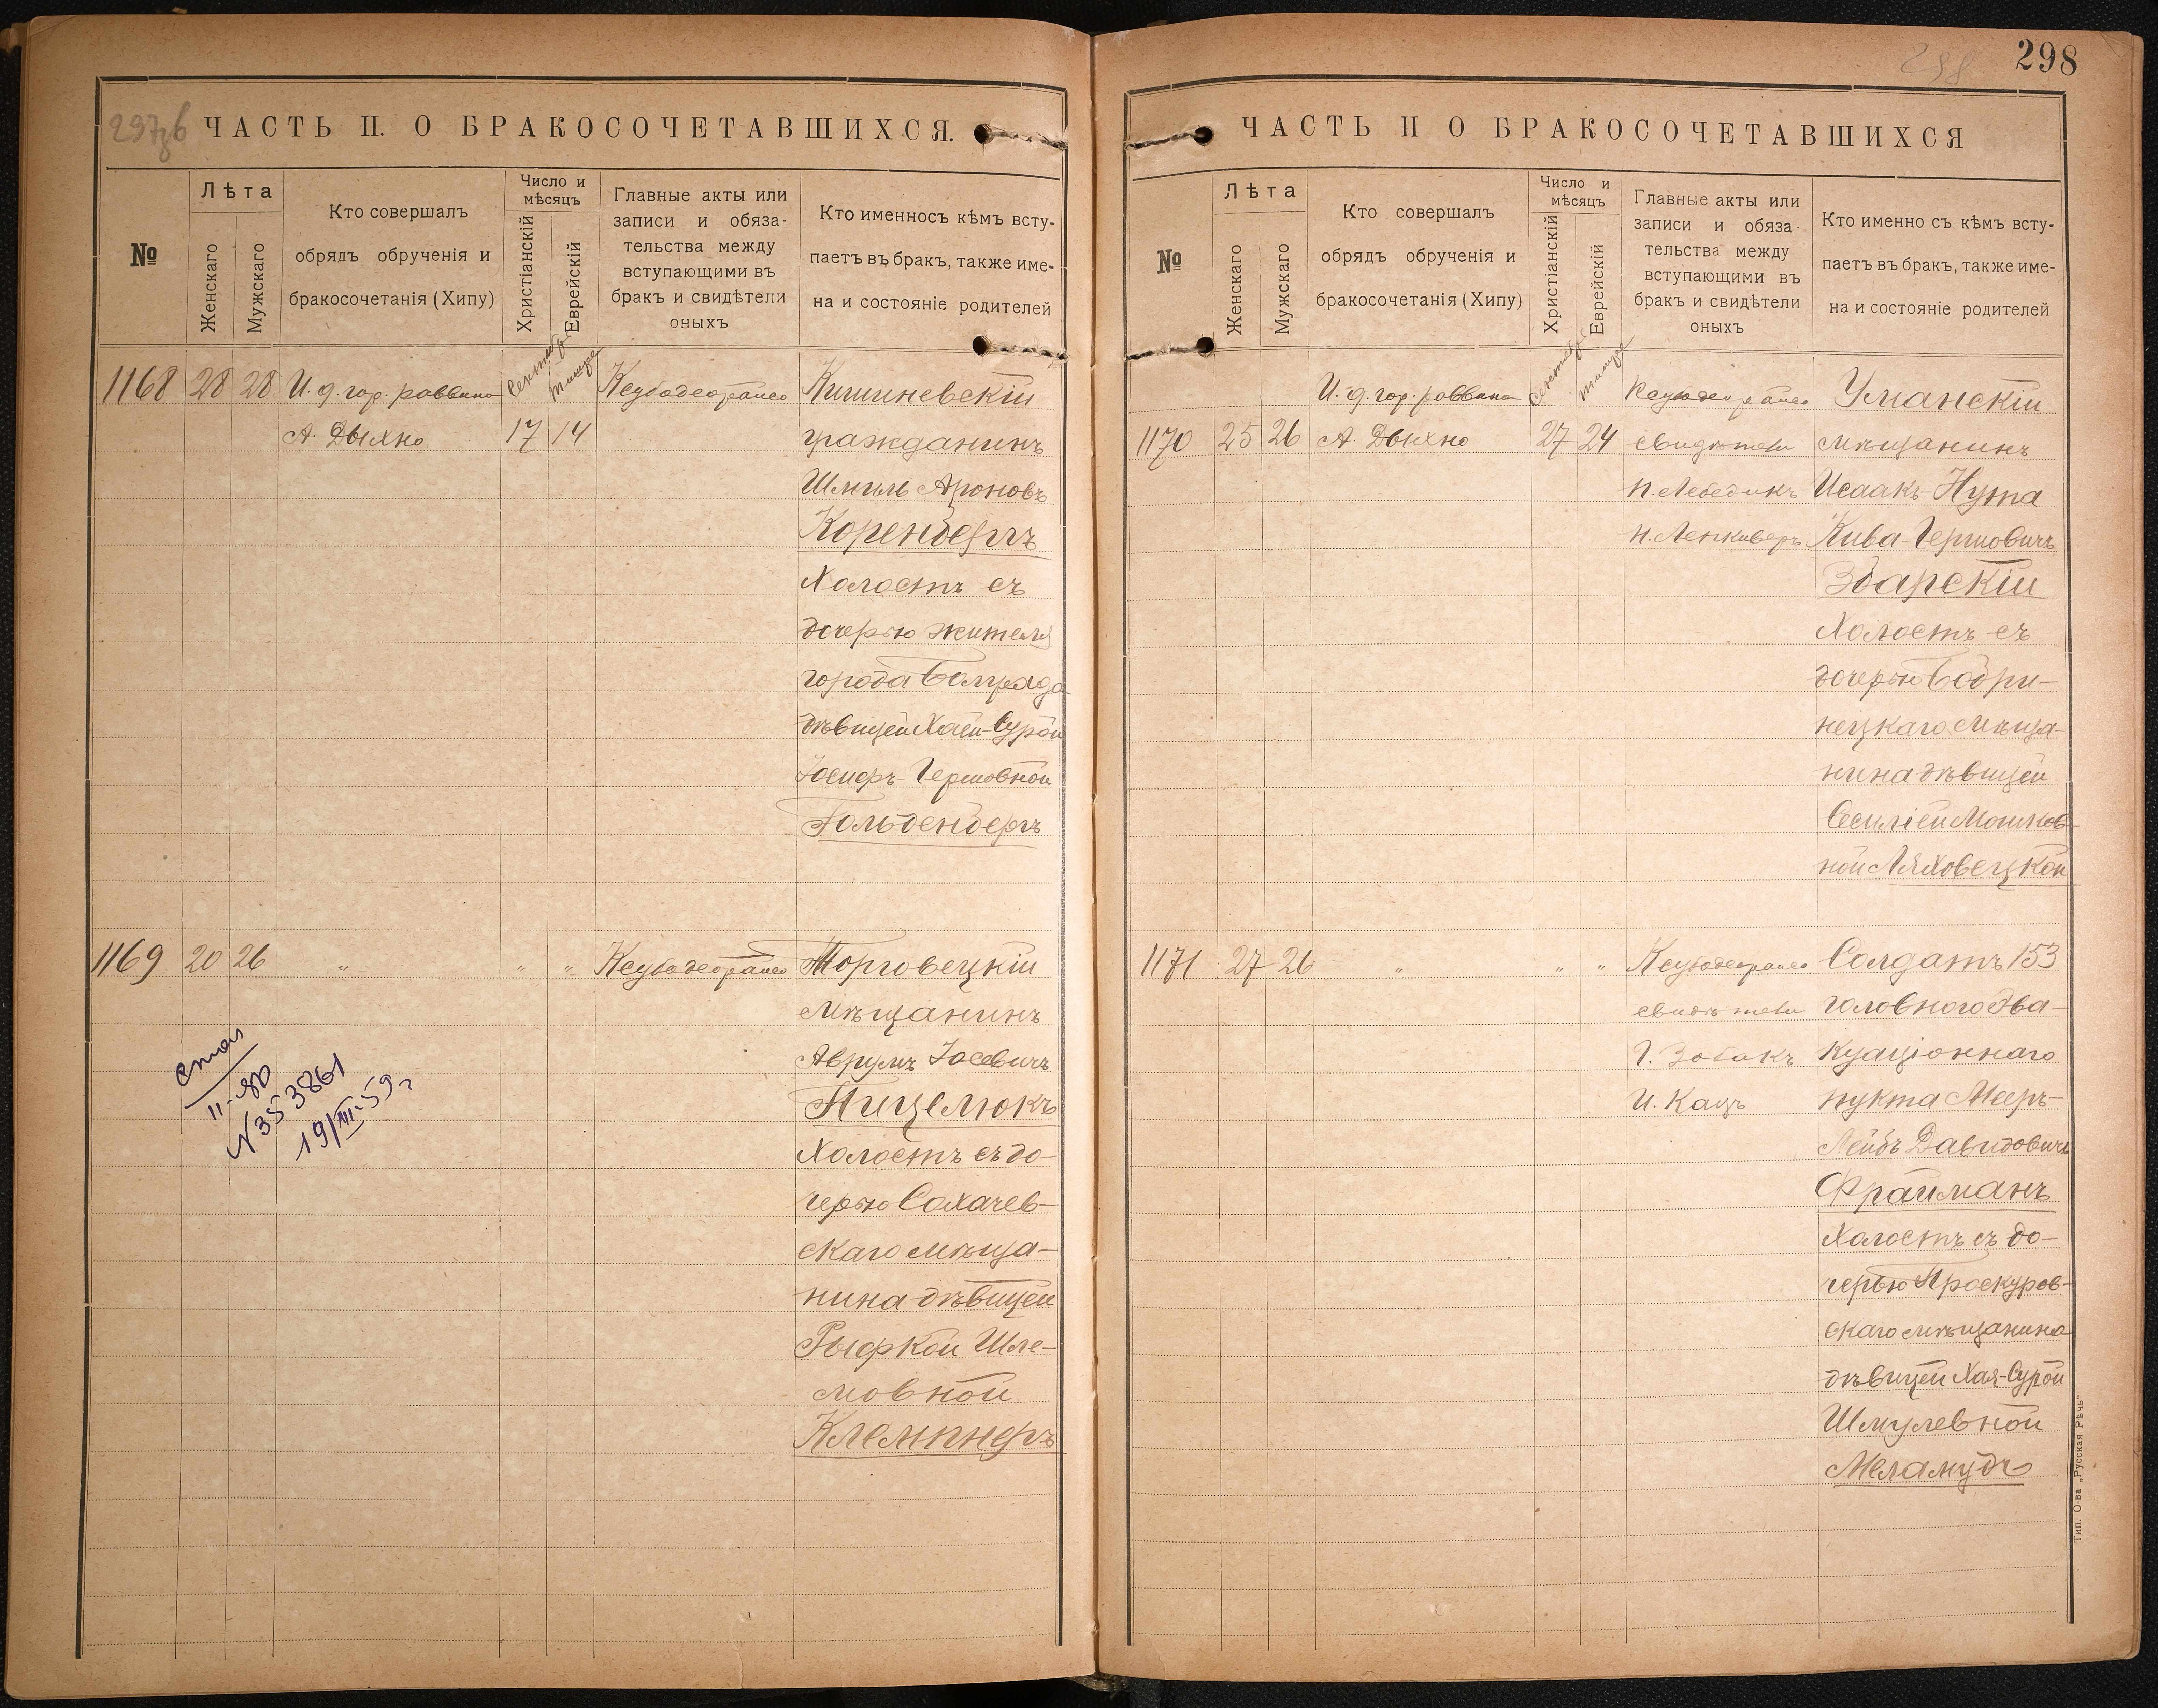 297зб
ЧАСТЬ II. О БРАКОСОЧЕТАВШИХСЯ.
№
Лѣта
Женскаго
Мужскаго
Кто совершалъ
обрядъ обрученія и
бракосочетанія (Хипу)
Число и
мѣсяцъ
Христіанскій
Еврейскій
Главные акты или
записи и обяза-
тельства между
вступающими въ
бракъ и свидѣтели
оныхъ
Кто именносъ кѣмъ всту-
паетъ въ бракъ, также име-
на и состояніе родителей
1168 28 28 И. д. гор. раввина Сентябр Тишре Кишиневскій
А. Дыхно 17 14 гражданинъ
Шмиль Ароновъ
Коренбергъ
Холостъ съ
дочерью жителя
города Болграда
дѣвицей Хаей-Сурой
Іосифъ-Гершовной
Гольденбергъ
1169 20 26 " " " Торговецкій
мѣщанинъ
Аврумъ Іосевичъ
Пицелюкъ
Холостъ съ до-
черью Сохачев-
скаго мѣща-
нина дѣвицей
Рыфкой Шле-
мовной
Клемпнеръ
II-ЯЮ
N353861
19/III-59г
298
298
ЧАСТЬ II О БРАКОСОЧЕТАВШИХСЯ
№
Лѣта
Женскаго
Мужскаго
Кто совершалъ
обрядъ обрученія и
бракосочетанія (Хипу)
Число и
мѣсяцъ
Христіанскій
Еврейскій
Главные акты или
записи и обяза-
тельства между
вступающими въ
бракъ и свидѣтели
оныхъ
Кто именно съ кѣмъ всту-
паетъ въ бракъ, также име-
на и состояніе родителей
И. д. гор. раввина Сентябр Тишре Уманскій
1170 25 26 А. Дыхно 27 24 свидѣтели мѣщанинъ
Н. Лебедикъ Исаакъ-Нута
Н. Ленкиверъ Кива-Гершовичъ
Збарскій
Холостъ съ
дочерью Бобри-
нецкаго мѣща-
нина дѣвицей
Сесиліей Мошков-
ной Ляховецкой
1171 27 26 " " " Солдатъ 153
свидѣтели головного эва-
Г. Зобакъ куаціоннаго
И. Кацъ пукта Мееръ-
Лейбъ Давидовичъ
Фрайманъ
Холостъ съ до-
черью Проскуров-
скаго мѣщанина
дѣвицей Хая-Сурой
Шмулевной
Меламудъ
Тип. О-ва „Русская Рѣчь"